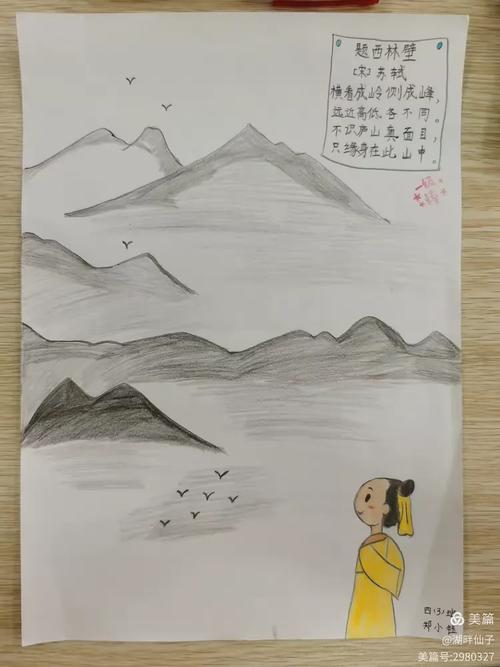 题西林壁
[宋] 苏轼
横看成岭侧成峰,
远近高低各不同。
不识庐山真面目,
只缘身在此山中。
一级棒
四(3)班
郑小
美篇
@湖畔仙子
美篇号:2980327